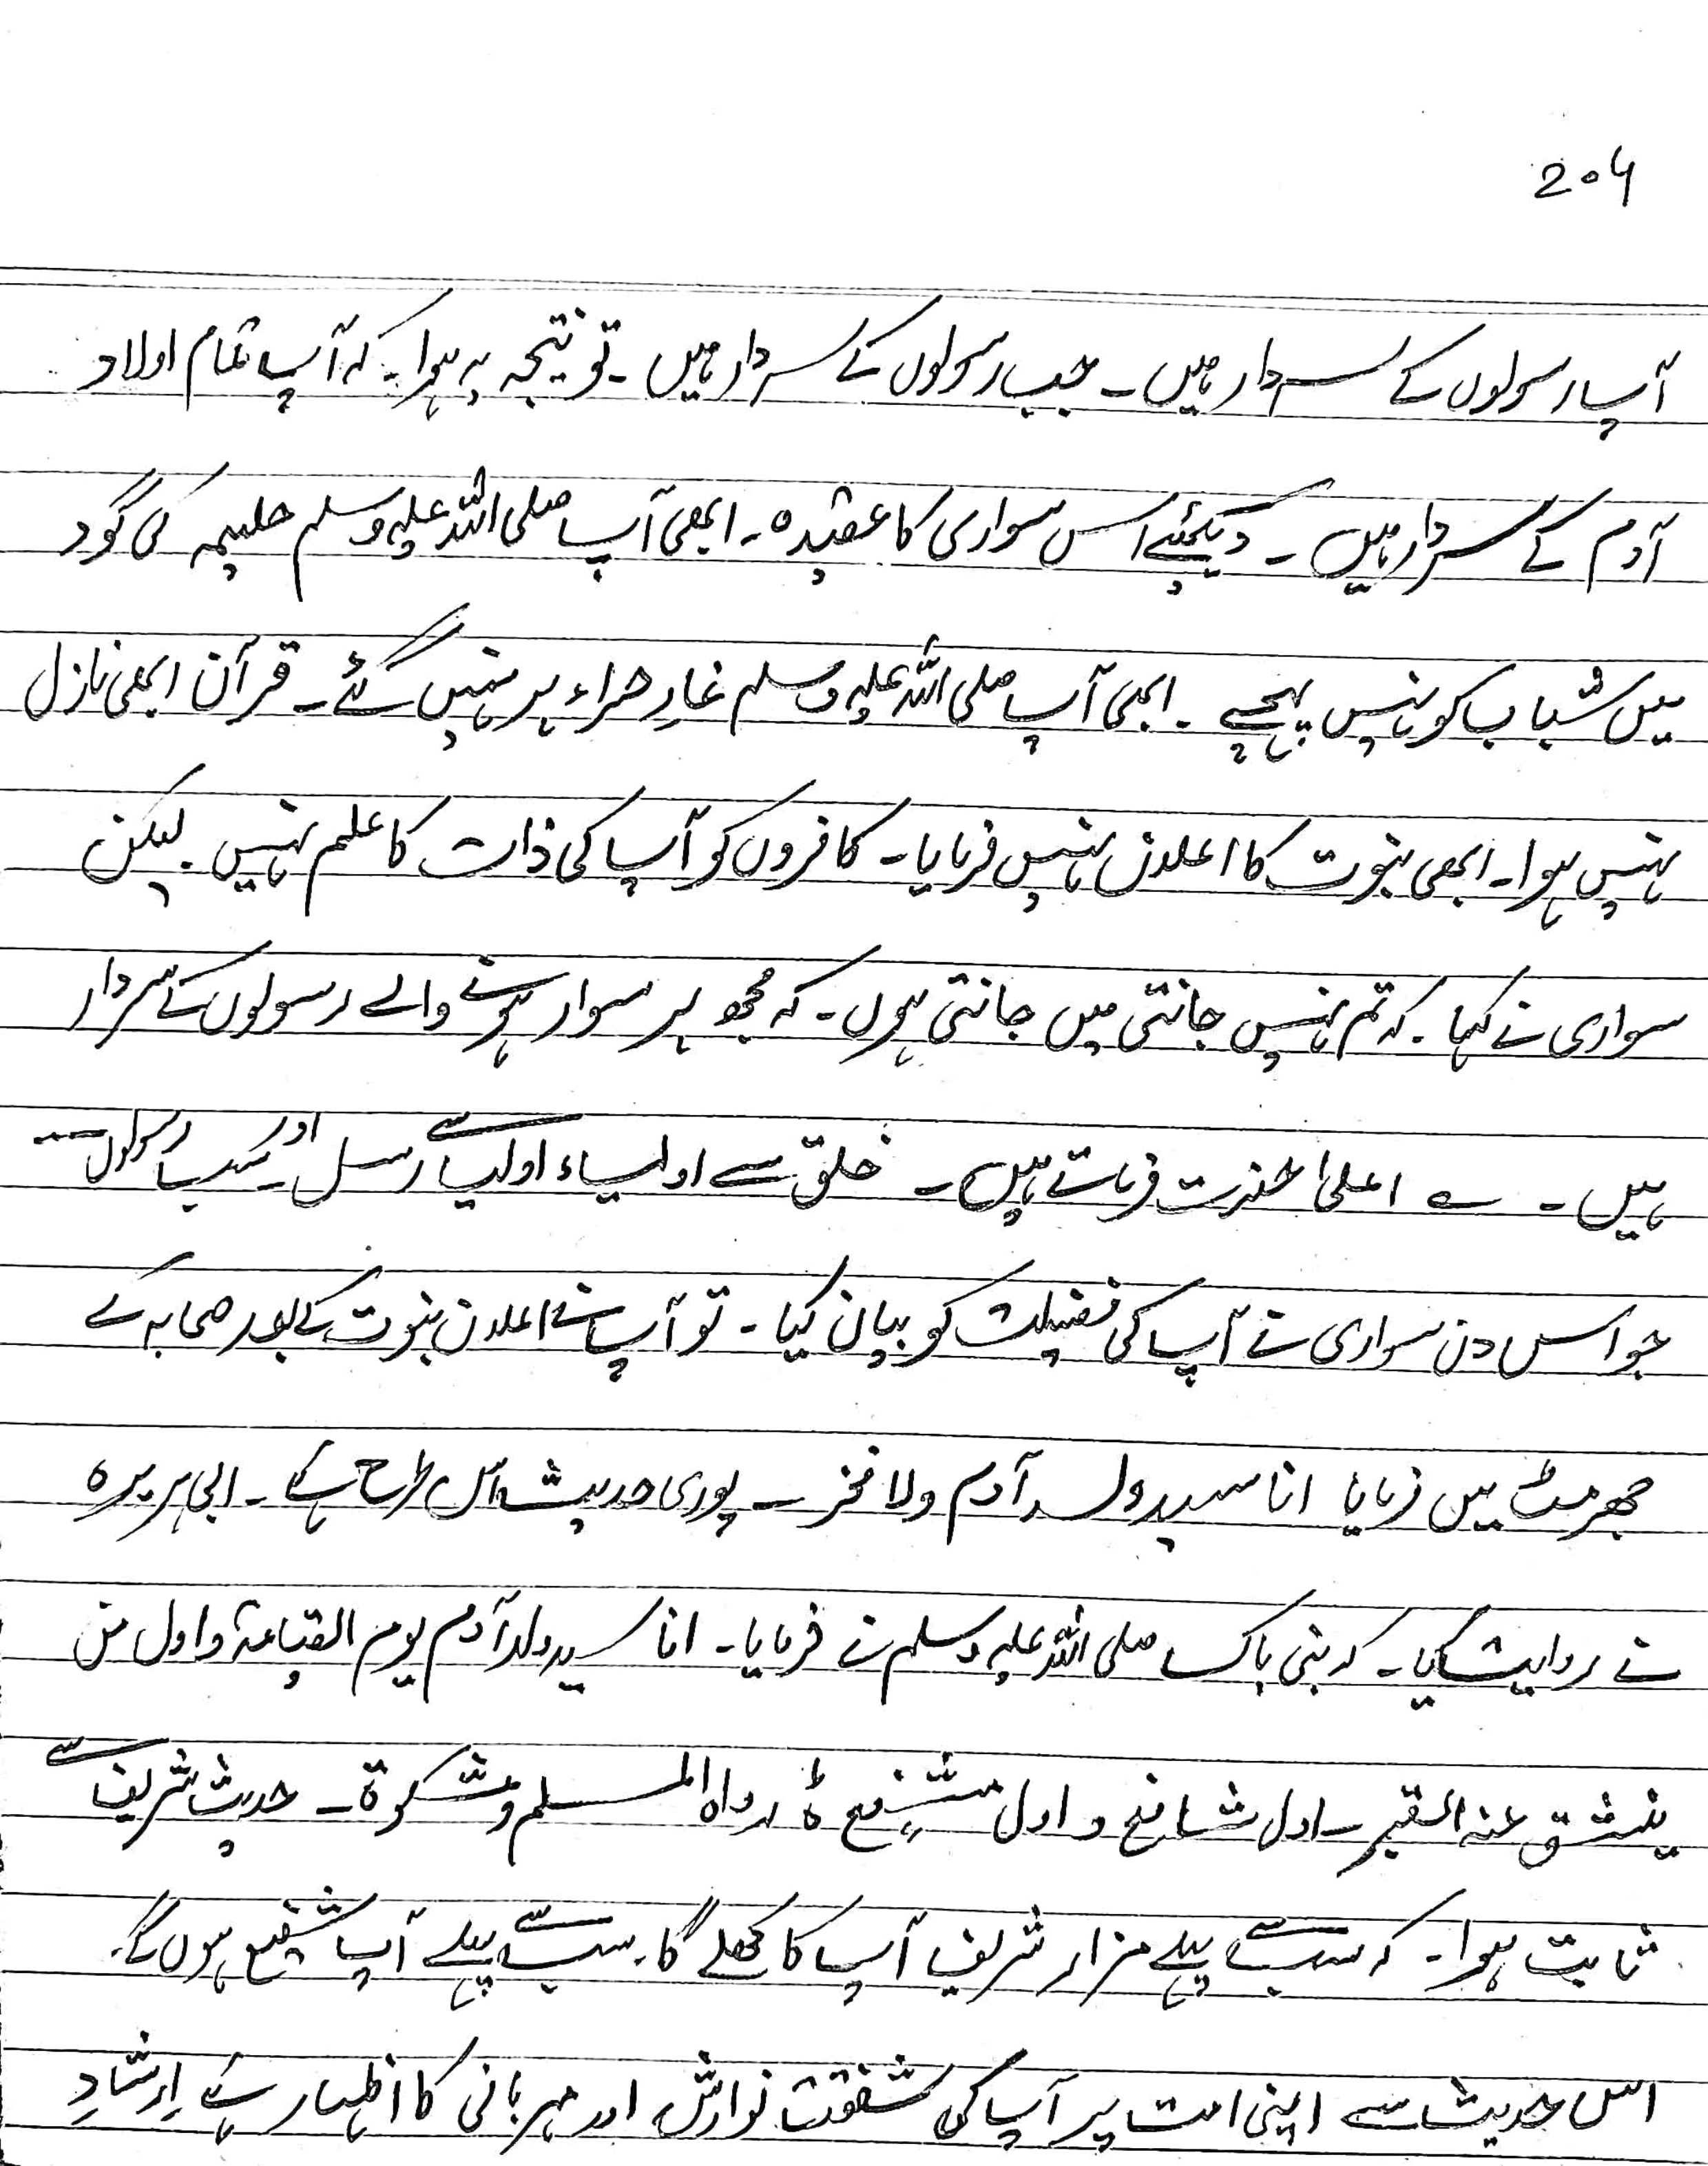 204
آپ رسولوں کے سردار ہیں ۔ جب رسولوں کے سردار ہیں ۔ تو نتیجہ یہ ہوا ۔ کہ آپ تمام اولاد
آدم کے سردار ہیں ۔ دیکھئے اس سواری کا عقیدہ ۔ ابھی آپ صلی اللہ علیہ وسلم حلیمہ کی گود
میں شباب کو نہیں پہنچے ۔ ابھی آپ صلی اللہ علیہ وسلم غارِ حراء پر نہیں گئے ۔ قرآن ابھی نازل
نہیں ہوا ۔ ابھی نبوت کا اعلان نہیں فرمایا ۔ کافروں کو آپ کی ذات کا علم نہیں ۔ لیکن
سواری نے کہا ۔ کہ تم نہیں جانتی میں جانتی ہوں ۔ کہ مجھ پر سوار ہونے والے رسولوں کے سردار
ہیں ۔ ؎ اعلیٰ حضرت فرماتے ہیں ۔ خلق سے اولیاء اولیا سے رسل اور سب رسولوں ...
جو اس دن سواری نے آپ کی فضیلت کو بیان کیا ۔ تو آپ نے اعلان نبوت کے بعد صحابہ کے
جھرمٹ میں فرمایا انا سید ولد آدم ولا فخر ۔ پوری حدیث اس طرح ہے ۔ ابی ہریرہ
نے روایت کیا ۔ کہ نبی پاک صلی اللہ علیہ وسلم نے فرمایا ۔ انا سید ولد آدم یوم القیامۃ و اول من
ینشق عنہ القبر ۔ اول شافع و اول مشفع ط رواہ المسلم ومشکوۃ ۔ حدیث شریف سے
ثابت ہوا ۔ کہ سب سے پہلے مزار شریف آپ کا کھلے گا ۔ سب سے پہلے آپ شفیع ہوں گے ۔
اس حدیث سے اپنی امت پر آپ کی شفقت نوازش اور مہربانی کا اظہار ہے اِرشادِ